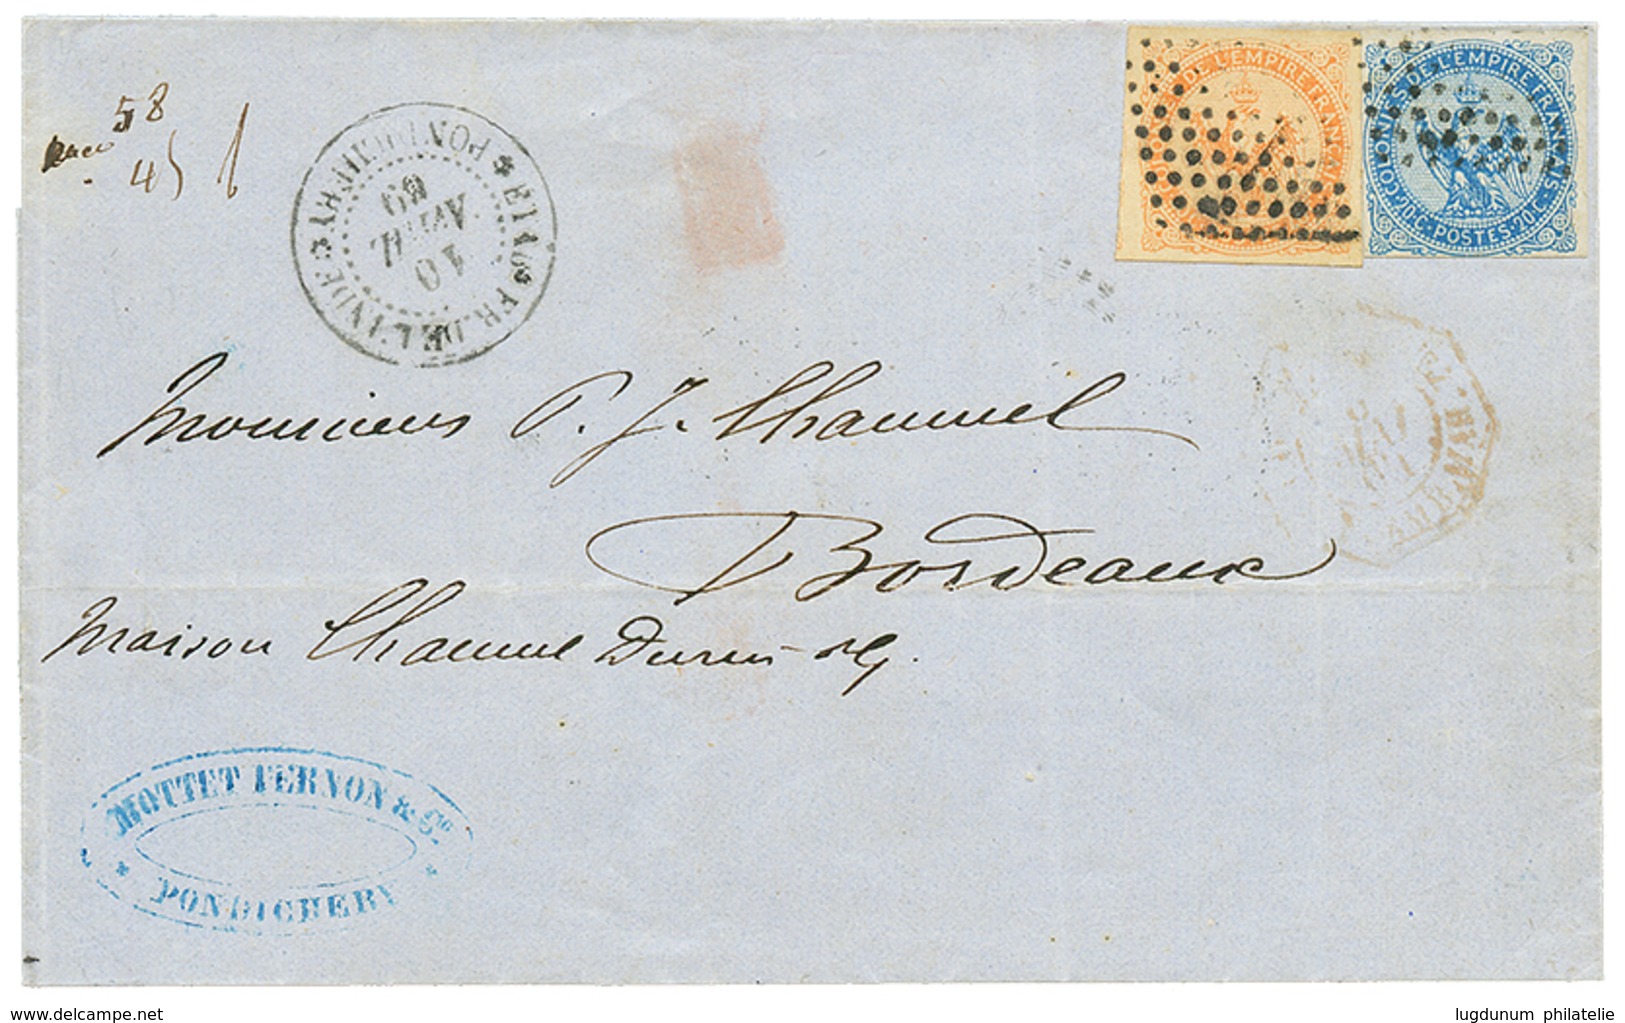 58
45
PONDICHERY * ETAB.S FR. DE L'INDE *
10
AVRIL
69
DE L'EMPIRE FRANÇAI
COLONIES DE L'EMPIRE FRANÇAIS
20C. POSTES. 20C.
Monsieur P. J. Chaumel
MAI
MAR.
Bordeaux
Maison Chaumel Durin
MOTTET VERNON & Cie
* PONDICHERY *
www.delcampe.net
lugdunum philatelie